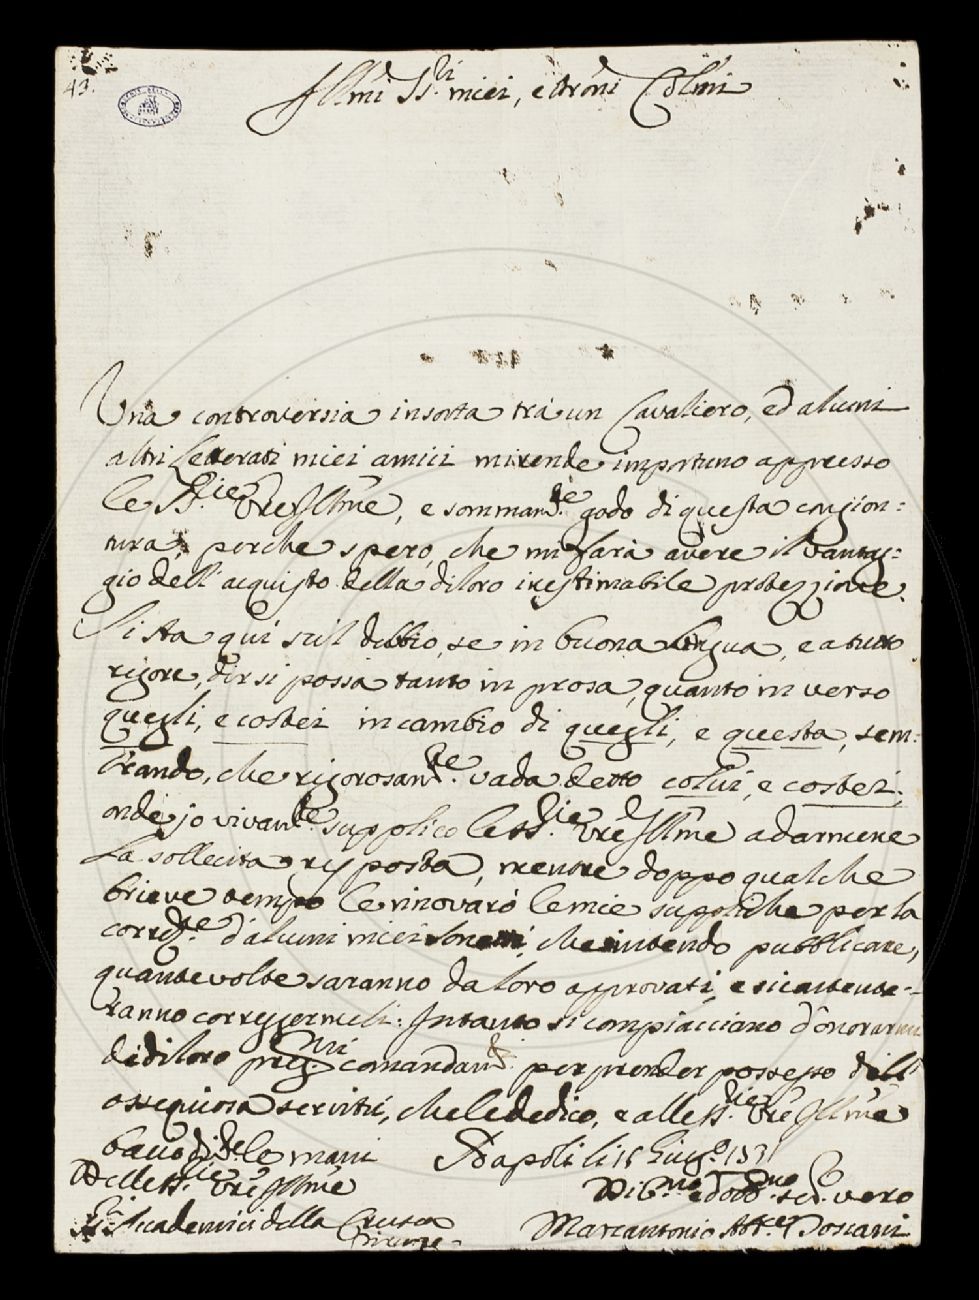 43.
Ill.mi SS.ri miei, e Pròni Col.mi
Una controversia insorta trà un Cavaliero, ed alcuni
altri Letterati miei amici mi rende importuno appresso
le SS.rie Vre Ill.me, e sommam.te godo di questa congion=
tura, perche spero, che mi farà avere il vantag=
gio dell'acquisto della di loro inestimabile protezzione.
Si sta quì sul dubbio, se in buona lingua, e a tutto
rigore, dir si possa tanto in prosa, quanto in verso
quegli, e costei in cambio di quegli, e questa, sem=
brando, che rigorosam.te vada detto colui, e costei;
onde jo vivam.te supplico le SS.rie Vre Ill.me a darmene
la sollecita risposta, mentre doppo qualche
brieve tempo le rinovarò le mie suppliche per la
corre.ne d'alcuni miei sonetti, che intendo pubblicare,
quante volte saranno da loro approvati, e si contente=
ranno corregermeli. Intanto si compiacciano d'onorarmi
di di loro preg.mi comandam.ti per prender possesso dell'
ossequiosa servitù, che le dedico, e alle SS.rie Vre Ill.me
bacio di le mani Napoli li 15 Giug.o 1731
Delle SS.rie Vre Ill.me
Di.mo ed obb.mo ser. vero
SS.ri Accademici della Crusca
Firenze
Marcantonio Ab.te Toscani